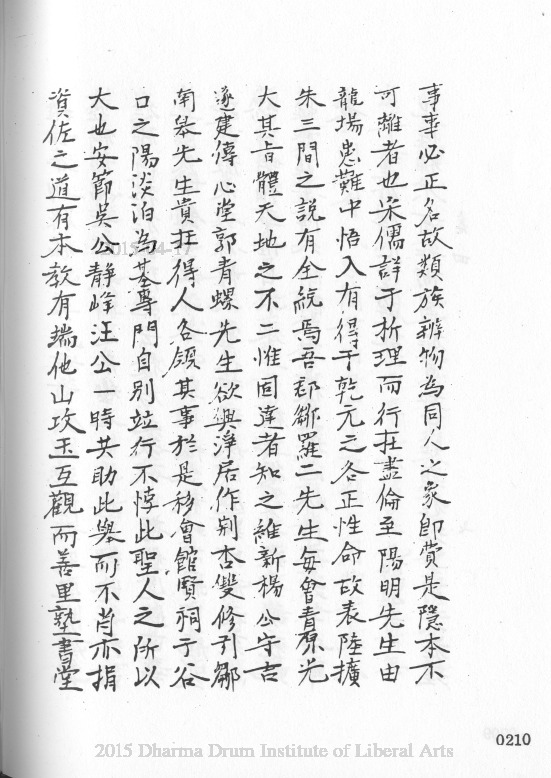 事事必正名故類族辨物為同人之象即費是隱本不
可離者也宋儒詳于析理而行在盡倫至陽明先生由
龍場患難中悟入有得于乾元之各正性命故表陸擴
朱三間之說有全統焉吾郡鄒羅二先生每會青原光
大其旨體天地之不二惟固達者知之維新楊公守吉
遂建傳心堂郭青螺先生欲與淨居作別杏雙修引鄒
南皋先生貴在得人各領其事於是移會館賢祠于谷
口之陽淡泊為基專門自別竝行不悖此聖人之所以
大也安節吳公靜峰汪公一時共助此舉而不肖亦捐
資佐之道有本教有端他山攻玉互觀而善里塾書堂
0210
2015-04-17
2015 Dharma Drum Institute of Liberal Arts